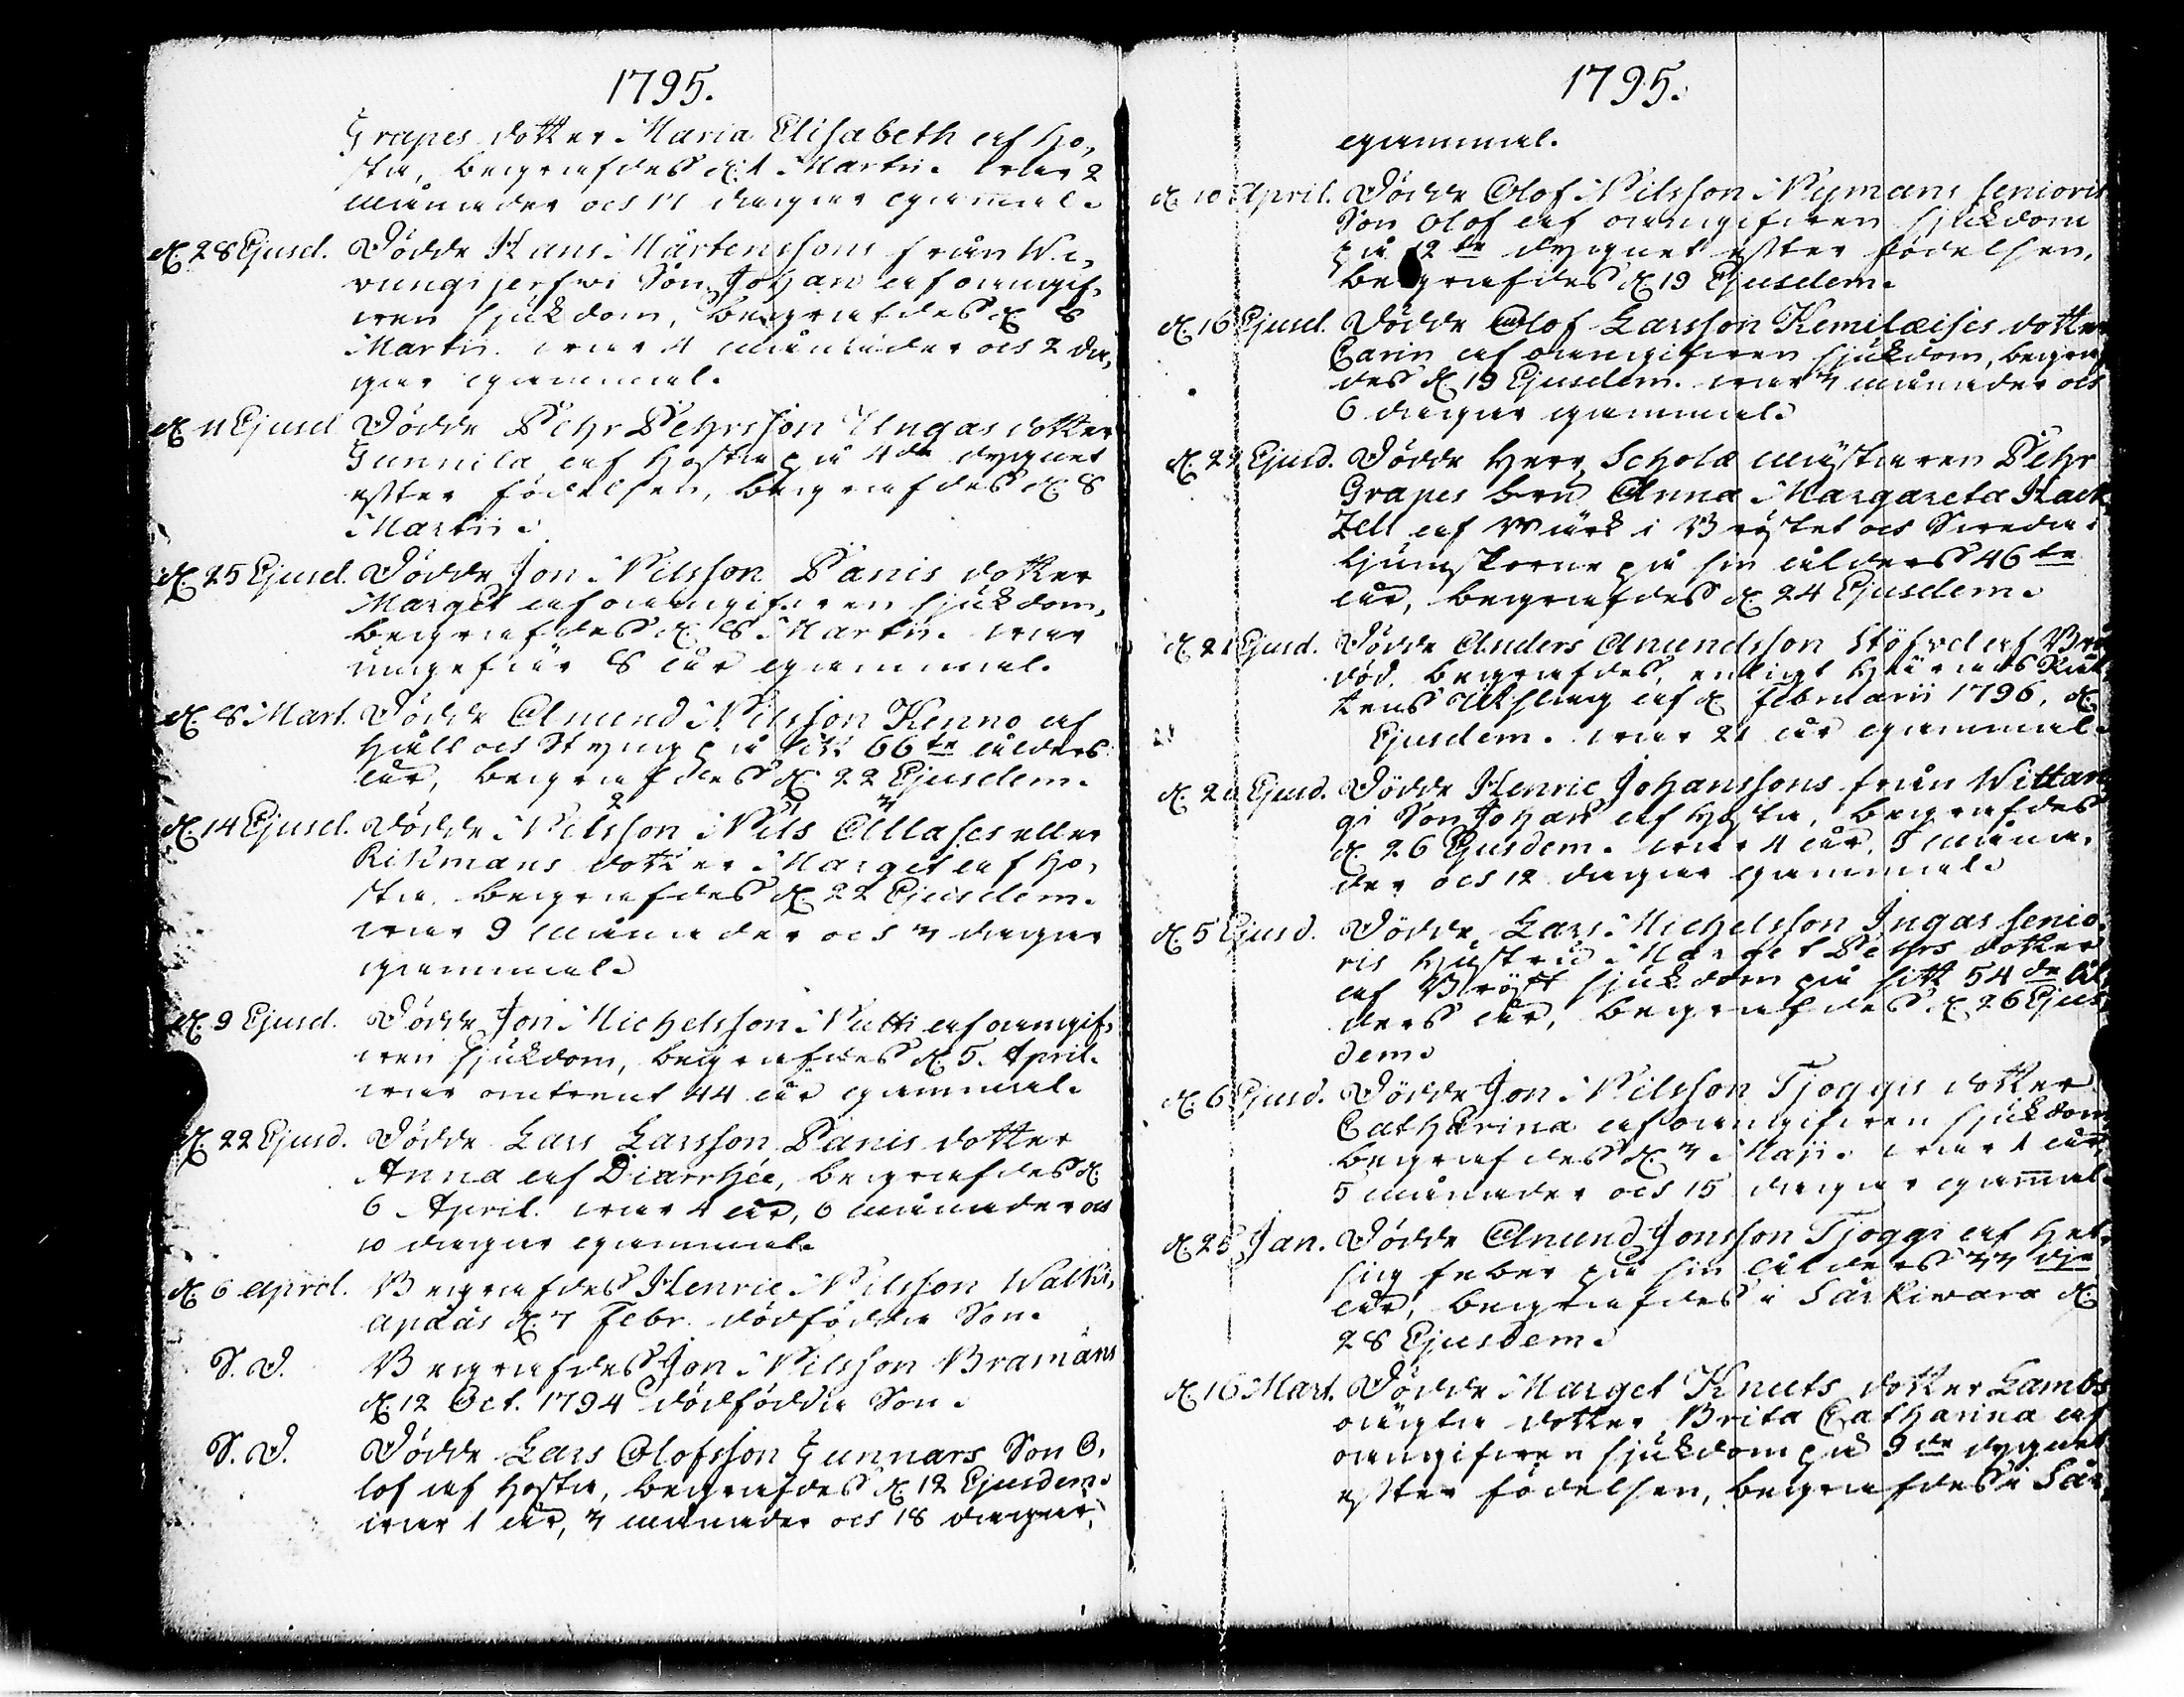 1795.
Grapes dotter Maria Elisabeth af Ho,
sta, begrafdes d. 1 Martii. war 2
månader och 11 dagar gammal.
d. 28 Ejusd. Dödde Hans Mårtenssons från
Son Johan af oangif,
wen sjukdom, begrafdes d. 8
Martii. war 4 månader och 2 da,
gar gammal.
d. 11 Ejusd Dödde Pehr Pehrsson Ungas dotter
Gunnila af Hosta på 4de dygnet
efter födelsen, begrafdes d. 8
Martii.
d. 25 Ejusd. Dödde Jon Nilsson Panis dotter
Marget af oangifwen sjukdom,
begrafdes d. 8 Martii. war
ungefär 8 år gammal.
d. 8 Mart. Dödde Amund Nilsson Kenno af
Håll och Styng på sitt 66te ålders
år, begrafdes d. 22 Ejusdem.
d. 14 Ejusd. Dödde Nilsson Nils Allases eller
Rikmans dotter Marget af Ho,
sta, begrafdes d. 22 Ejusdem.
war 9 månader och 7 dagar
gammal.
d. 9 Ejusd. Dödde Jon Michelsson Nutti af oangif,
wen sjukdom, begrafdes d. 5. April.
war omtrent 44 år gammal.
d. 22 Ejusd. Dödde Lars Larsson Panis dotter
Anna af Diarrhée, begrafdes d.
6 April. war 4 år, 6 månader och
10 dagar gammal.
d. 6 April. Begrafdes Henric Nilsson Walki,
apääs d. 7 Febr. dödfödda Son.
S. D. Begrafdes Jon Nilsson Bramans
d. 12 Oct. 1794 dödfödda Son.
S. D. Dödde Lars Olofsson Gunnars Son O,
lof af Hosta, begrafdes d. 12 Ejusdem.
war 1 år, 7 månader och 18 dagar,
1795.
gammal.
d. 10 April. Dödde Olof Nilsson Nymans senioris
Son Olof af oangifwen sjukdom
på 12te dygnet efter födelsen,
begrafdes d. 19 Ejusdem.
d. 16 Ejusd. Dödde Olof Larsson Kemilæises dotter
Carin af oangifwen sjukdom, begraf
des d. 19 Ejusdem. war 7 månader och
6 dagar gammal.
Ejusd. Dödde Herr Scholæ mästaren Pehr
Grapes fru Anna Margareta Hack
Zell af Wärk i Bröstet och
ljumskorne på sin ålders 46te
år, begrafdes d. 24 Ejusdem.
d. 21 Ejusd. Dödde Anders Amundsson af Brå
död, begrafdes, enligt Härads Rät
tens Utslag af d. Februarii 1796, d.
Ejusdem. war 21 år gammal.
Ejusd. Dödde Henric Johanssons från Wittan
gi Son Johan af Hosta, begrafdes
d. 26 Ejusdem. war 4 år, 8 måna,
der och 12 dagar gammal.
d. 5 Ejusd. Dödde Lars Michelsson Ingas senio,
ris Hustru Marget Pehrs dotter
af Bröst sjukdom på sitt 54de ål
ders år, begrafdes d. 26 Ejus
dem.
d. 6 Ejusd. Dödde Jon Nilsson Tjoggis dotter
Catharina af oangifwen sjukdom
begrafdes d. 7 Maji. war 1 år,
5 månader och 15 dagar gammal.
d. 25 Jan. Dödde Amund Jonsson Tjoggi af Het,
sig feber på sin ålders 77dje
år, begrafdes i Särkiwara d.
28 Ejusdem.
d. 16 Mart. Dödde Marget Knuts dotter Lambs
oägta dotter Brita Catharina af
oangifwen sjukdom på 9de dygnet
efter födelsen, begrafdes i Sär,